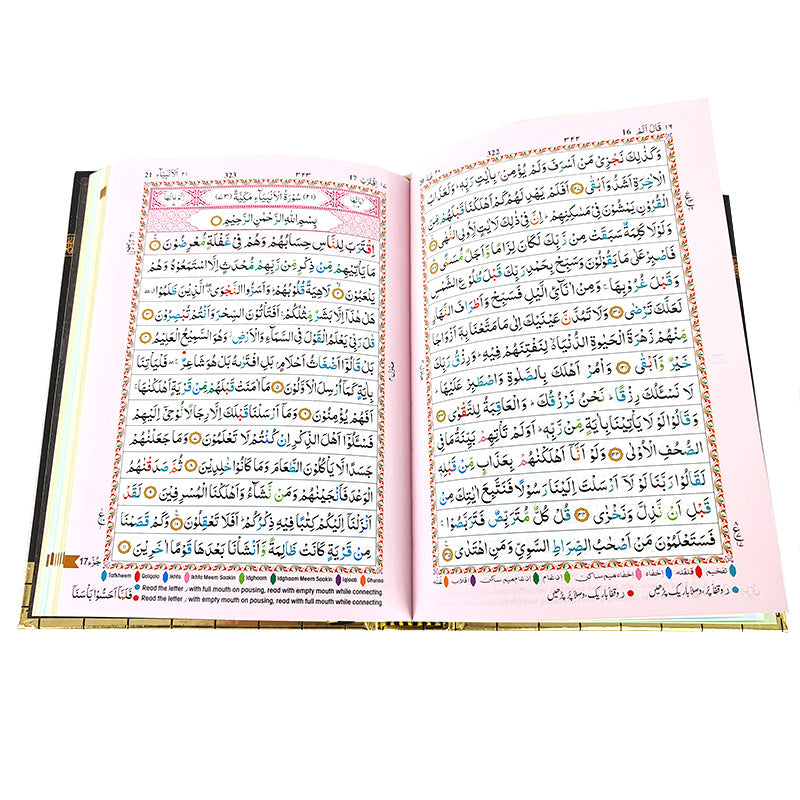 ١٦ قَالَ اَلَمْ 16
٣٢٢
322
وَكَذٰلِكَ نَجْزِىْ مَنْ اَسْرَفَ وَلَمْ يُؤْمِنْۢ بِاٰيٰتِ رَبِّهٖ ؕ وَلَعَذَابُ
الْاٰخِرَةِ اَشَدُّ وَاَبْقٰى ۝ اَفَلَمْ يَهْدِ لَهُمْ كَمْ اَهْلَكْنَا قَبْلَهُمْ مِّنَ
الْقُرُوْنِ يَمْشُوْنَ فِىْ مَسٰكِنِهِمْ ؕ اِنَّ فِىْ ذٰلِكَ لَاٰيٰتٍ لِّاُولِى النُّهٰى ۝
وَلَوْلَا كَلِمَةٌ سَبَقَتْ مِنْ رَّبِّكَ لَكَانَ لِزَامًا وَّاَجَلٌ مُّسَمًّى ۝
فَاصْبِرْ عَلٰى مَا يَقُوْلُوْنَ وَسَبِّحْ بِحَمْدِ رَبِّكَ قَبْلَ طُلُوْعِ الشَّمْسِ
وَقَبْلَ غُرُوْبِهَا ۚ وَمِنْ اٰنَآئِ الَّيْلِ فَسَبِّحْ وَاَطْرَافَ النَّهَارِ
لَعَلَّكَ تَرْضٰى ۝ وَلَا تَمُدَّنَّ عَيْنَيْكَ اِلٰى مَا مَتَّعْنَا بِهٖۤ اَزْوَاجًا
مِّنْهُمْ زَهْرَةَ الْحَيٰوةِ الدُّنْيَا ۙ لِنَفْتِنَهُمْ فِيْهِ ؕ وَرِزْقُ رَبِّكَ
خَيْرٌ وَّاَبْقٰى ۝ وَاْمُرْ اَهْلَكَ بِالصَّلٰوةِ وَاصْطَبِرْ عَلَيْهَا ؕ
لَا نَسْـَٔلُكَ رِزْقًا ؕ نَحْنُ نَرْزُقُكَ ؕ وَالْعَاقِبَةُ لِلتَّقْوٰى ۝
وَقَالُوْا لَوْلَا يَاْتِيْنَا بِاٰيَةٍ مِّنْ رَّبِّهٖ ؕ اَوَلَمْ تَاْتِهِمْ بَيِّنَةُ مَا فِى
الصُّحُفِ الْاُوْلٰى ۝ وَلَوْ اَنَّاۤ اَهْلَكْنٰهُمْ بِعَذَابٍ مِّنْ قَبْلِهٖ
لَقَالُوْا رَبَّنَا لَوْلَاۤ اَرْسَلْتَ اِلَيْنَا رَسُوْلًا فَنَتَّبِعَ اٰيٰتِكَ مِنْ
قَبْلِ اَنْ نَّذِلَّ وَنَخْزٰى ۝ قُلْ كُلٌّ مُّتَرَبِّصٌ فَتَرَبَّصُوْا ۚ
فَسَتَعْلَمُوْنَ مَنْ اَصْحٰبُ الصِّرَاطِ السَّوِىِّ وَمَنِ اهْتَدٰى ۝
تفخیم قلقلہ اخفاء اخفاءمیم ساکن ادغام ادغام میم ساکن اقلاب غنہ
ر وقفاً پُر، وصلاً باریک پڑھیں ر وقفاً باریک، وصلاً پُر پڑھیں
١٧ اِقْتَرَبَ 17
٣٢٣
323
٢١ اَلْاَنْۢبِيَآء 21
(٢١) سُوْرَةُ الْاَنْۢبِيَآءِ مَكِّيَّةٌ (٧٣)
بِسْمِ اللّٰهِ الرَّحْمٰنِ الرَّحِيْمِ
اِقْتَرَبَ لِلنَّاسِ حِسَابُهُمْ وَهُمْ فِىْ غَفْلَةٍ مُّعْرِضُوْنَ ۝
مَا يَاْتِيْهِمْ مِّنْ ذِكْرٍ مِّنْ رَّبِّهِمْ مُّحْدَثٍ اِلَّا اسْتَمَعُوْهُ وَهُمْ
يَلْعَبُوْنَ ۝ لَاهِيَةً قُلُوْبُهُمْ ؕ وَاَسَرُّوا النَّجْوَى ۖ الَّذِيْنَ ظَلَمُوْا ۖ
هَلْ هٰذَاۤ اِلَّا بَشَرٌ مِّثْلُكُمْ ۚ اَفَتَاْتُوْنَ السِّحْرَ وَاَنْتُمْ تُبْصِرُوْنَ ۝
قٰلَ رَبِّىْ يَعْلَمُ الْقَوْلَ فِى السَّمَآءِ وَالْاَرْضِ ؗ وَهُوَ السَّمِيْعُ الْعَلِيْمُ ۝
بَلْ قَالُوْۤا اَضْغَاثُ اَحْلَامٍۢ بَلِ افْتَرٰىهُ بَلْ هُوَ شَاعِرٌ ۖۚ فَلْيَاْتِنَا
بِاٰيَةٍ كَمَاۤ اُرْسِلَ الْاَوَّلُوْنَ ۝ مَاۤ اٰمَنَتْ قَبْلَهُمْ مِّنْ قَرْيَةٍ اَهْلَكْنٰهَا ۚ
اَفَهُمْ يُؤْمِنُوْنَ ۝ وَمَاۤ اَرْسَلْنَا قَبْلَكَ اِلَّا رِجَالًا نُّوْحِىْۤ اِلَيْهِمْ
فَسْـَٔلُوْۤا اَهْلَ الذِّكْرِ اِنْ كُنْتُمْ لَا تَعْلَمُوْنَ ۝ وَمَا جَعَلْنٰهُمْ
جَسَدًا لَّا يَاْكُلُوْنَ الطَّعَامَ وَمَا كَانُوْا خٰلِدِيْنَ ۝ ثُمَّ صَدَقْنٰهُمُ
الْوَعْدَ فَاَنْجَيْنٰهُمْ وَمَنْ نَّشَآءُ وَاَهْلَكْنَا الْمُسْرِفِيْنَ ۝ لَقَدْ
اَنْزَلْنَاۤ اِلَيْكُمْ كِتٰبًا فِيْهِ ذِكْرُكُمْ ؕ اَفَلَا تَعْقِلُوْنَ ۝ وَكَمْ قَصَمْنَا
مِنْ قَرْيَةٍ كَانَتْ ظَالِمَةً وَّاَنْشَاْنَا بَعْدَهَا قَوْمًا اٰخَرِيْنَ ۝
جُزْ:17
Tafkheem Qalqala Ikhfa Ikhfa Meem Saakin Idghaam Idghaam Meem Saakin Iqlaab Ghunna
Read the letter ر with full mouth on pausing, read with empty mouth while connecting
Read the letter ر with empty mouth on pausing, read with full mouth while connecting
فَلَمَّاۤ اَحَسُّوْا بَاْسَنَاۤ